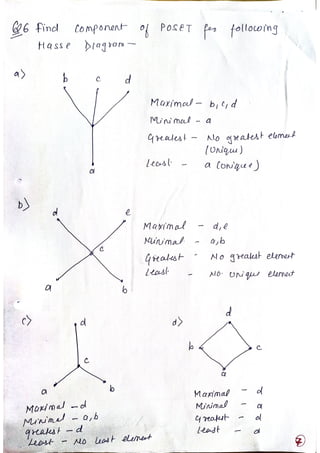 Q6 Find Component of POSET for following
Hasse Diagram -
a)
b c d
a
Maximal - b, c, d
Minimal - a
Greatest - No greatest element
(Unique)
Least - a (Unique)
b)
d e
c
a b
Maximal - d, e
Minimal - a, b
Greatest - No greatest element
Least - No unique element
c)
d
c
a b
Maximal - d
Minimal - a, b
greatest - d
Least - No least element
d)
d
b c
a
Maximal - d
Minimal - a
Greatest - d
Least - a
7